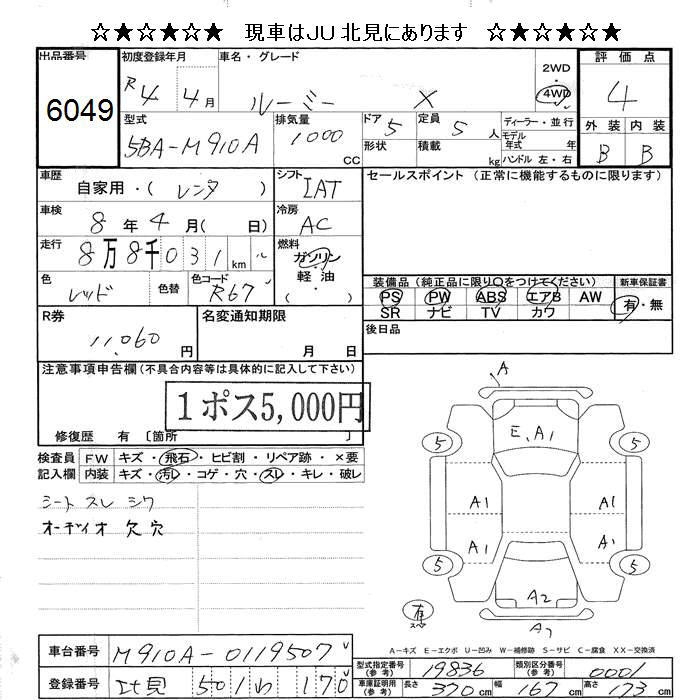 ☆★☆★☆★ 現車はJU北見にあります ☆★☆★☆★
出品番号
6049
初度登録年月
R4 4月
車名・グレード
ルーミー X
2WD
4WD
評価点
4
外装 内装
B B
型式
5BA-M910A
排気量
1000 CC
ドア 5
形状
定員 5 人
積載 kg
ディーラー・並行
モデル
年式 年
ハンドル 左・右
車歴
自家用・(レンタ)
シフト
IAT
セールスポイント(正常に機能するものに限ります)
車検
8年4月( 日)
冷房
AC
走行
8万8千031km
燃料
ガソリン
軽・油
( ・ )
色
レッド
色替
色コード
R67
装備品(純正品に限り○をつけてください)
PS PW ABS エアB AW
SR ナビ TV カワ
新車保証書
有・無
R券
11.060円
名変通知期限
月 日
後日品
注意事項申告欄(不具合内容等は具体的に記入して下さい)
1ポス5,000円
修復歴 有 〔箇所 〕
検査員
記入欄
FW キズ・飛石・ヒビ割・リペア跡・×要
内装 キズ・汚レ・コゲ・穴・スレ・キレ・破レ
シート スレ シワ
オーディオ 欠 穴
A
E, A1
5 5
A1 A1
A1 A1
5 5
A2
有
A
A-キズ E-エクボ U-凹み W-補修跡 S-サビ C-腐食 XX-交換済
車台番号
M910A-0119507
登録番号
北見 501 わ 170
型式指定番号
(参考)
19836
類別区分番号
(参考)
0001
車庫証明用
(参考)
長さ 370cm 幅 167cm 高さ 173cm